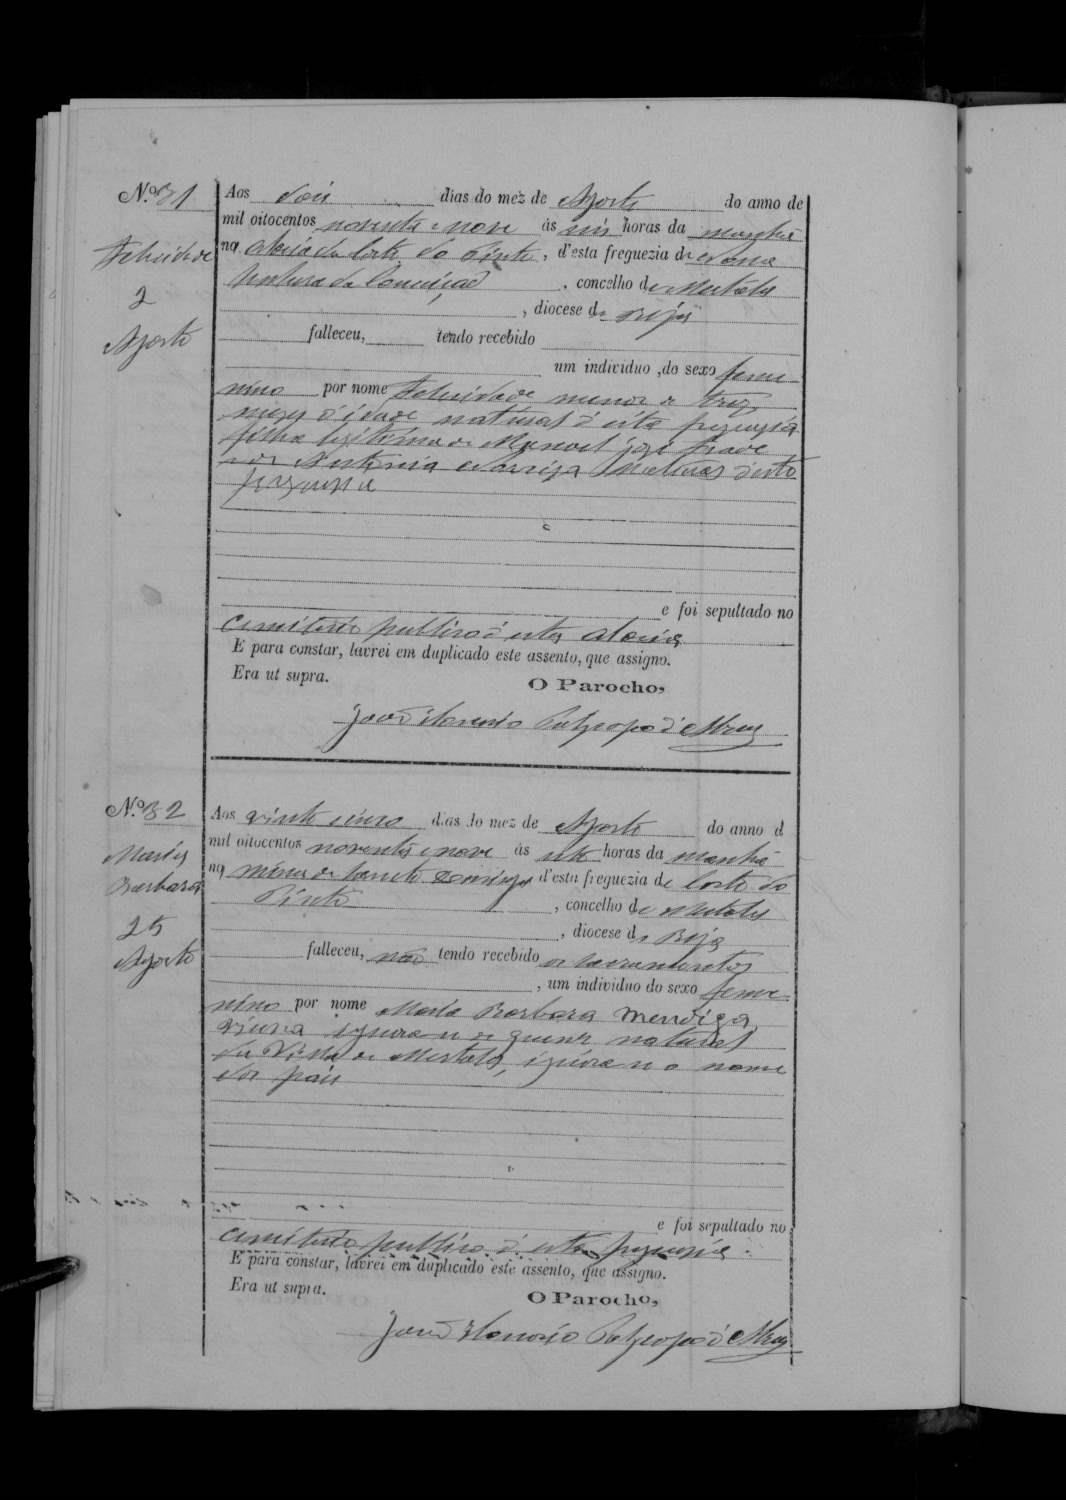 N.º 31
Felicidade
2
Agosto
Aos dois dias do mez de Agosto do anno de
mil oitocentos noventa e nove ás seis horas da manhã
na Aldeia da Corte do Pinto, d'esta freguezia de Nossa
Senhora da Conceição, concelho de Mertola
, diocese de Beja
falleceu, tendo recebido
um individuo do sexo femi-
nino por nome Felicidade menor de tres
mezes d'idade natural d'esta freguezia
filha legitima de Manoel José
e de naturaes d'esta
freguezia
e foi sepultado no
cemiterio publico d'esta aldeia
E para constar, lavrei em duplicado este assento, que assigno.
Era ut supra.
O Parocho,
N.º 32
Maria
Barbara
25
Agosto
Aos vinte cinco dias do mez de Agosto do anno d
mil oitocentos noventa e nove ás sete horas da manhã
na mina de Sam Domingos d'esta freguezia de Corte do
Pinto, concelho de Mertola
, diocese de Beja
falleceu, não tendo recebido os sacramentos
, um individuo do sexo femi-
nino por nome Maria Barbara Mendiga,
viuva ignora-se de quem natural
da Villa de Mertola, ignora-se o nome
dos pais
e foi sepultado no
cemiterio publico d'esta freguezia.
E para constar, lavrei em duplicado este assento, que assigno.
Era ut supra.
O Parocho,